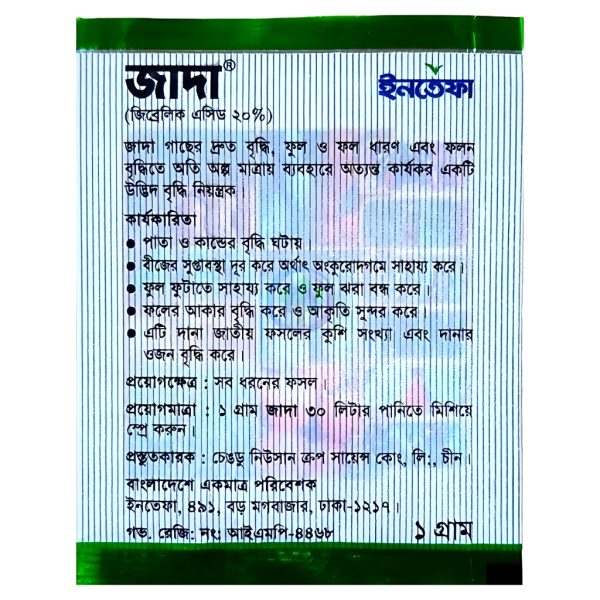 জাদা® ইনতেফা
(জিব্রেলিক এসিড ২০%)
জাদা গাছের দ্রুত বৃদ্ধি, ফুল ও ফল ধারণ এবং ফলন
বৃদ্ধিতে অতি অল্প মাত্রায় ব্যবহারে অত্যন্ত কার্যকর একটি
উদ্ভিদ বৃদ্ধি নিয়ন্ত্রক
কার্যকারিতা
● পাতা ও কান্ডের বৃদ্ধি ঘটায়।
● বীজের সুপ্তাবস্থা দূর করে অর্থাৎ অংকুরোদগমে সাহায্য করে।
● ফুল ফুটাতে সাহায্য করে ও ফুল ঝরা বন্ধ করে।
● ফলের আকার বৃদ্ধি করে ও আকৃতি সুন্দর করে।
● এটি দানা জাতীয় ফসলের কুশি সংখ্যা এবং দানার
ওজন বৃদ্ধি করে।
প্রয়োগক্ষেত্র : সব ধরনের ফসল।
প্রয়োগমাত্রা : ১ গ্রাম জাদা ৩০ লিটার পানিতে মিশিয়ে
স্প্রে করুন।
প্রস্তুতকারক : চেঙডু নিউসান ক্রপ সায়েন্স কোং, লি:, চীন।
বাংলাদেশে একমাত্র পরিবেশক
ইনতেফা, ৪৯১, বড় মগবাজার, ঢাকা-১২১৭।
গভ. রেজি: নং: আইএমপি-৪৪৬৮ ১ গ্রাম